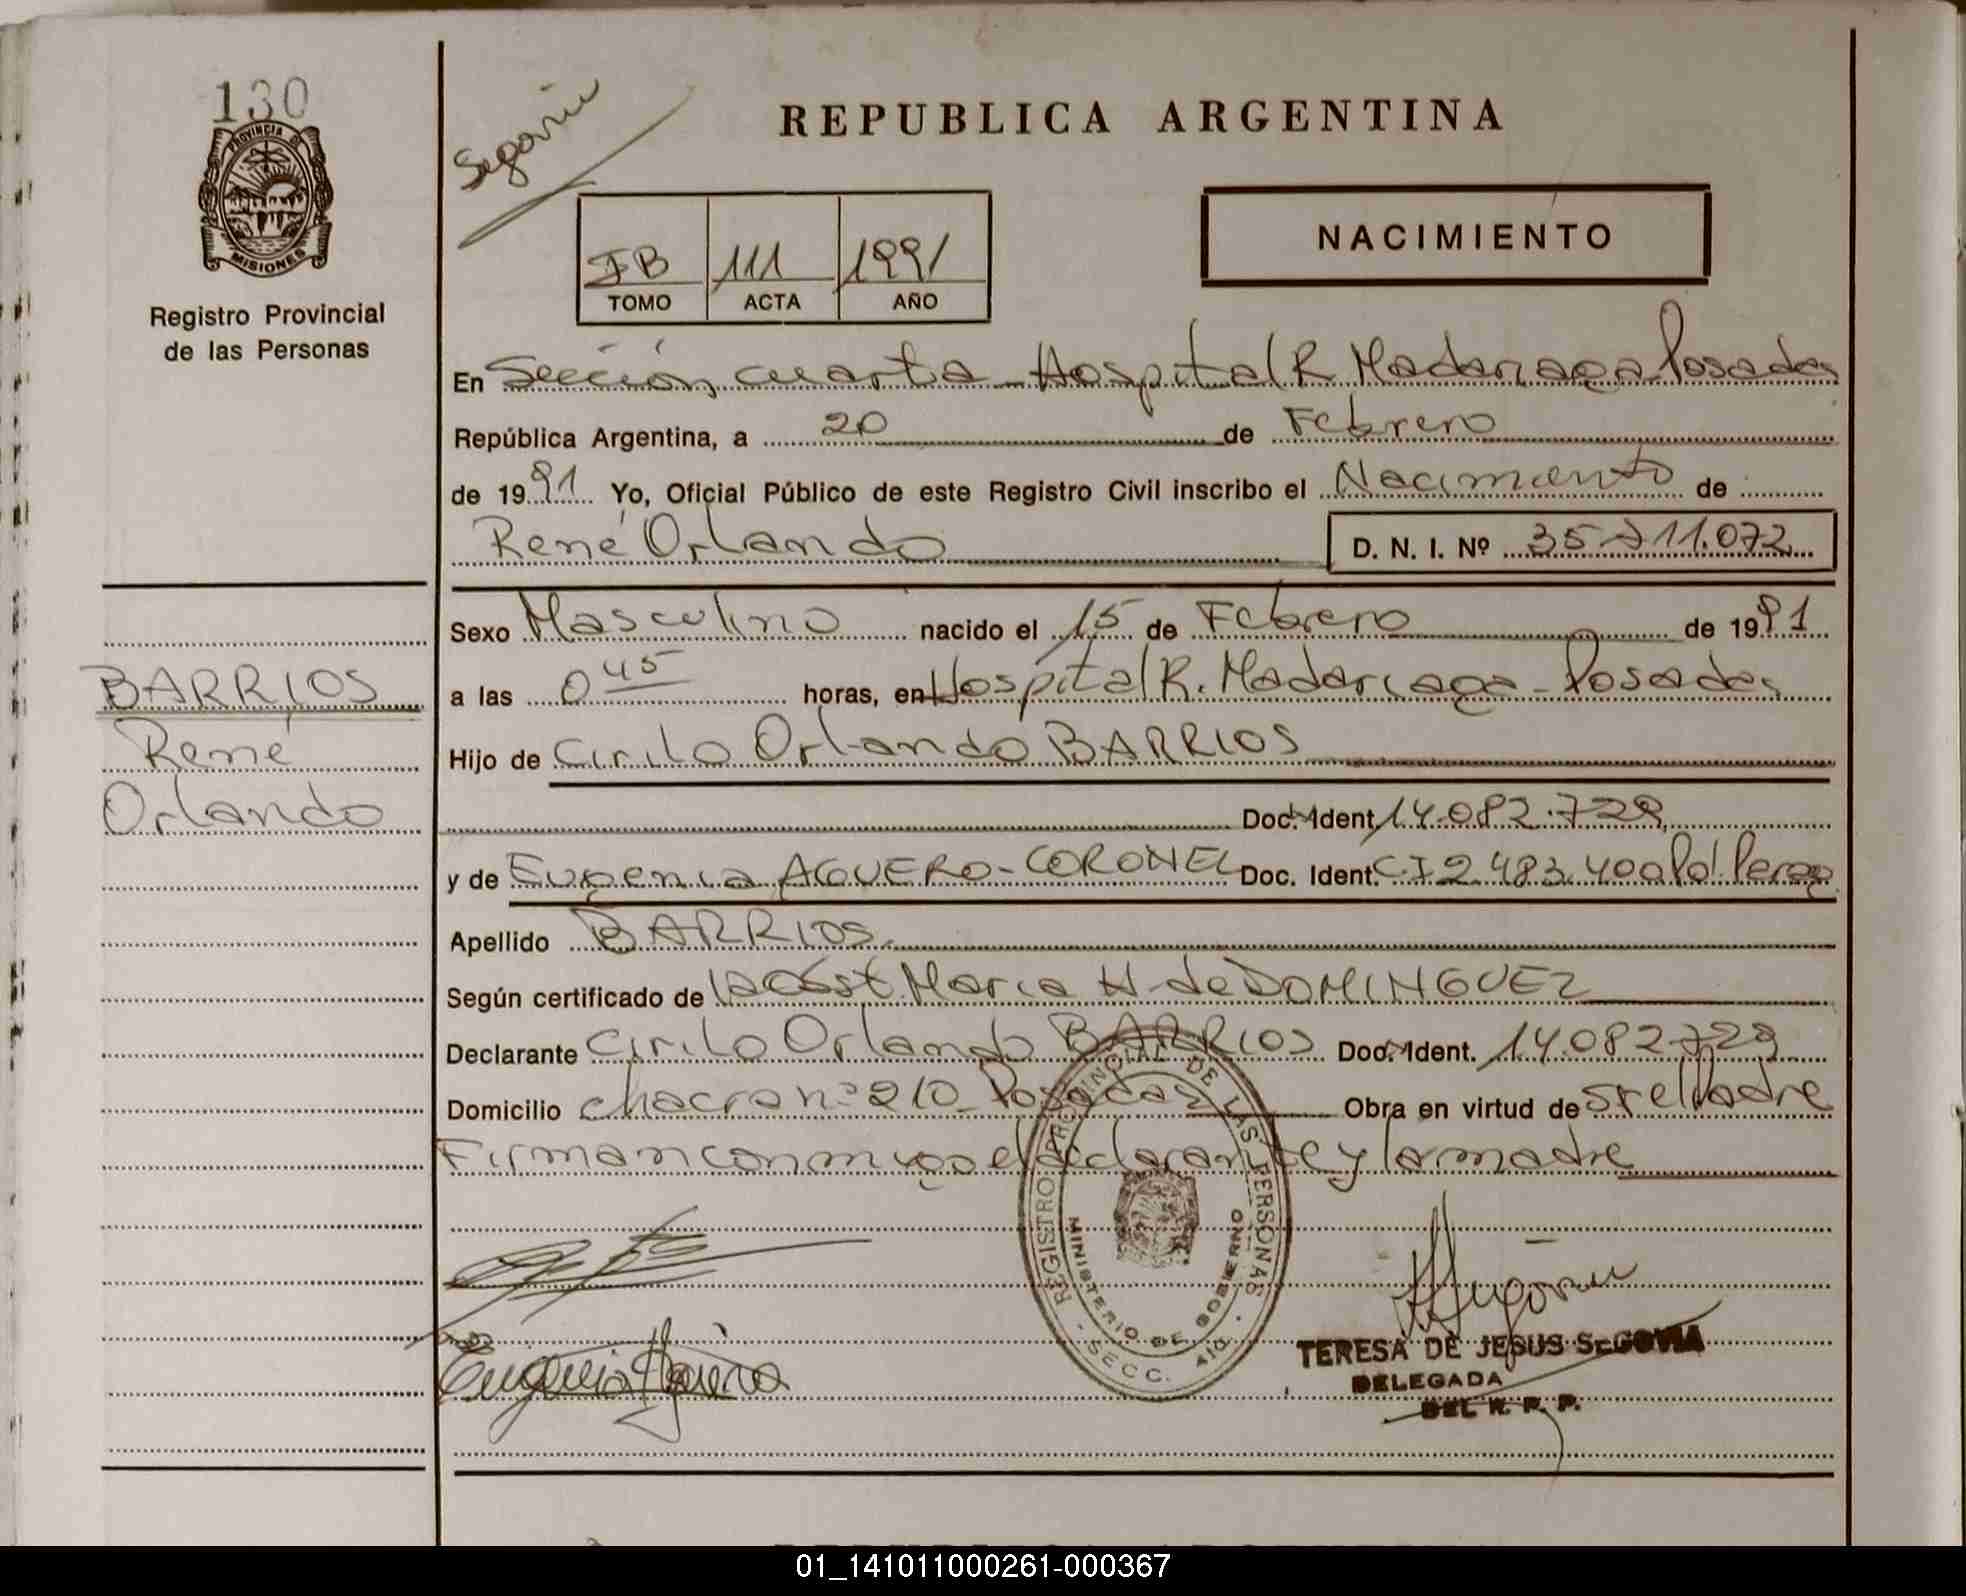 130
PROVINCIA DE
MISIONES
Registro Provincial
de las Personas
BARRIOS
René
Orlando
Segovia
REPUBLICA ARGENTINA
IB 111 1991
TOMO ACTA AÑO
NACIMIENTO
En Sección cuarta Hospital R. Madariaga Posadas
República Argentina, a 20 de Febrero
de 1991 Yo, Oficial Público de este Registro Civil inscribo el Nacimiento de
René Orlando D. N. I. Nº 35.711.072
Sexo Masculino nacido el 15 de Febrero de 1991
a las 0 45 horas, en Hospital R. Madariaga - Posadas
Hijo de Cirilo Orlando BARRIOS
Doc. Ident. 14.082.729
y de Eugenia AGUERO-CORONEL Doc. Ident. CI 2.483.400 Pol. Parag
Apellido BARRIOS
Según certificado de la Obst. Maria H. de DOMINGUEZ
Declarante Cirilo Orlando BARRIOS Doc. Ident. 14.082.729
Domicilio chacra nº 210 Posadas Obra en virtud de ser el Padre
Firman conmigo el declarante y la madre
REGISTRO PROVINCIAL DE LAS PERSONAS
MINISTERIO DE GOBIERNO
- SECC. 4ta. -
Eugenia Aguero
TERESA DE JESUS SEGOVIA
DELEGADA
DEL R. P. P.
01_141011000261-000367